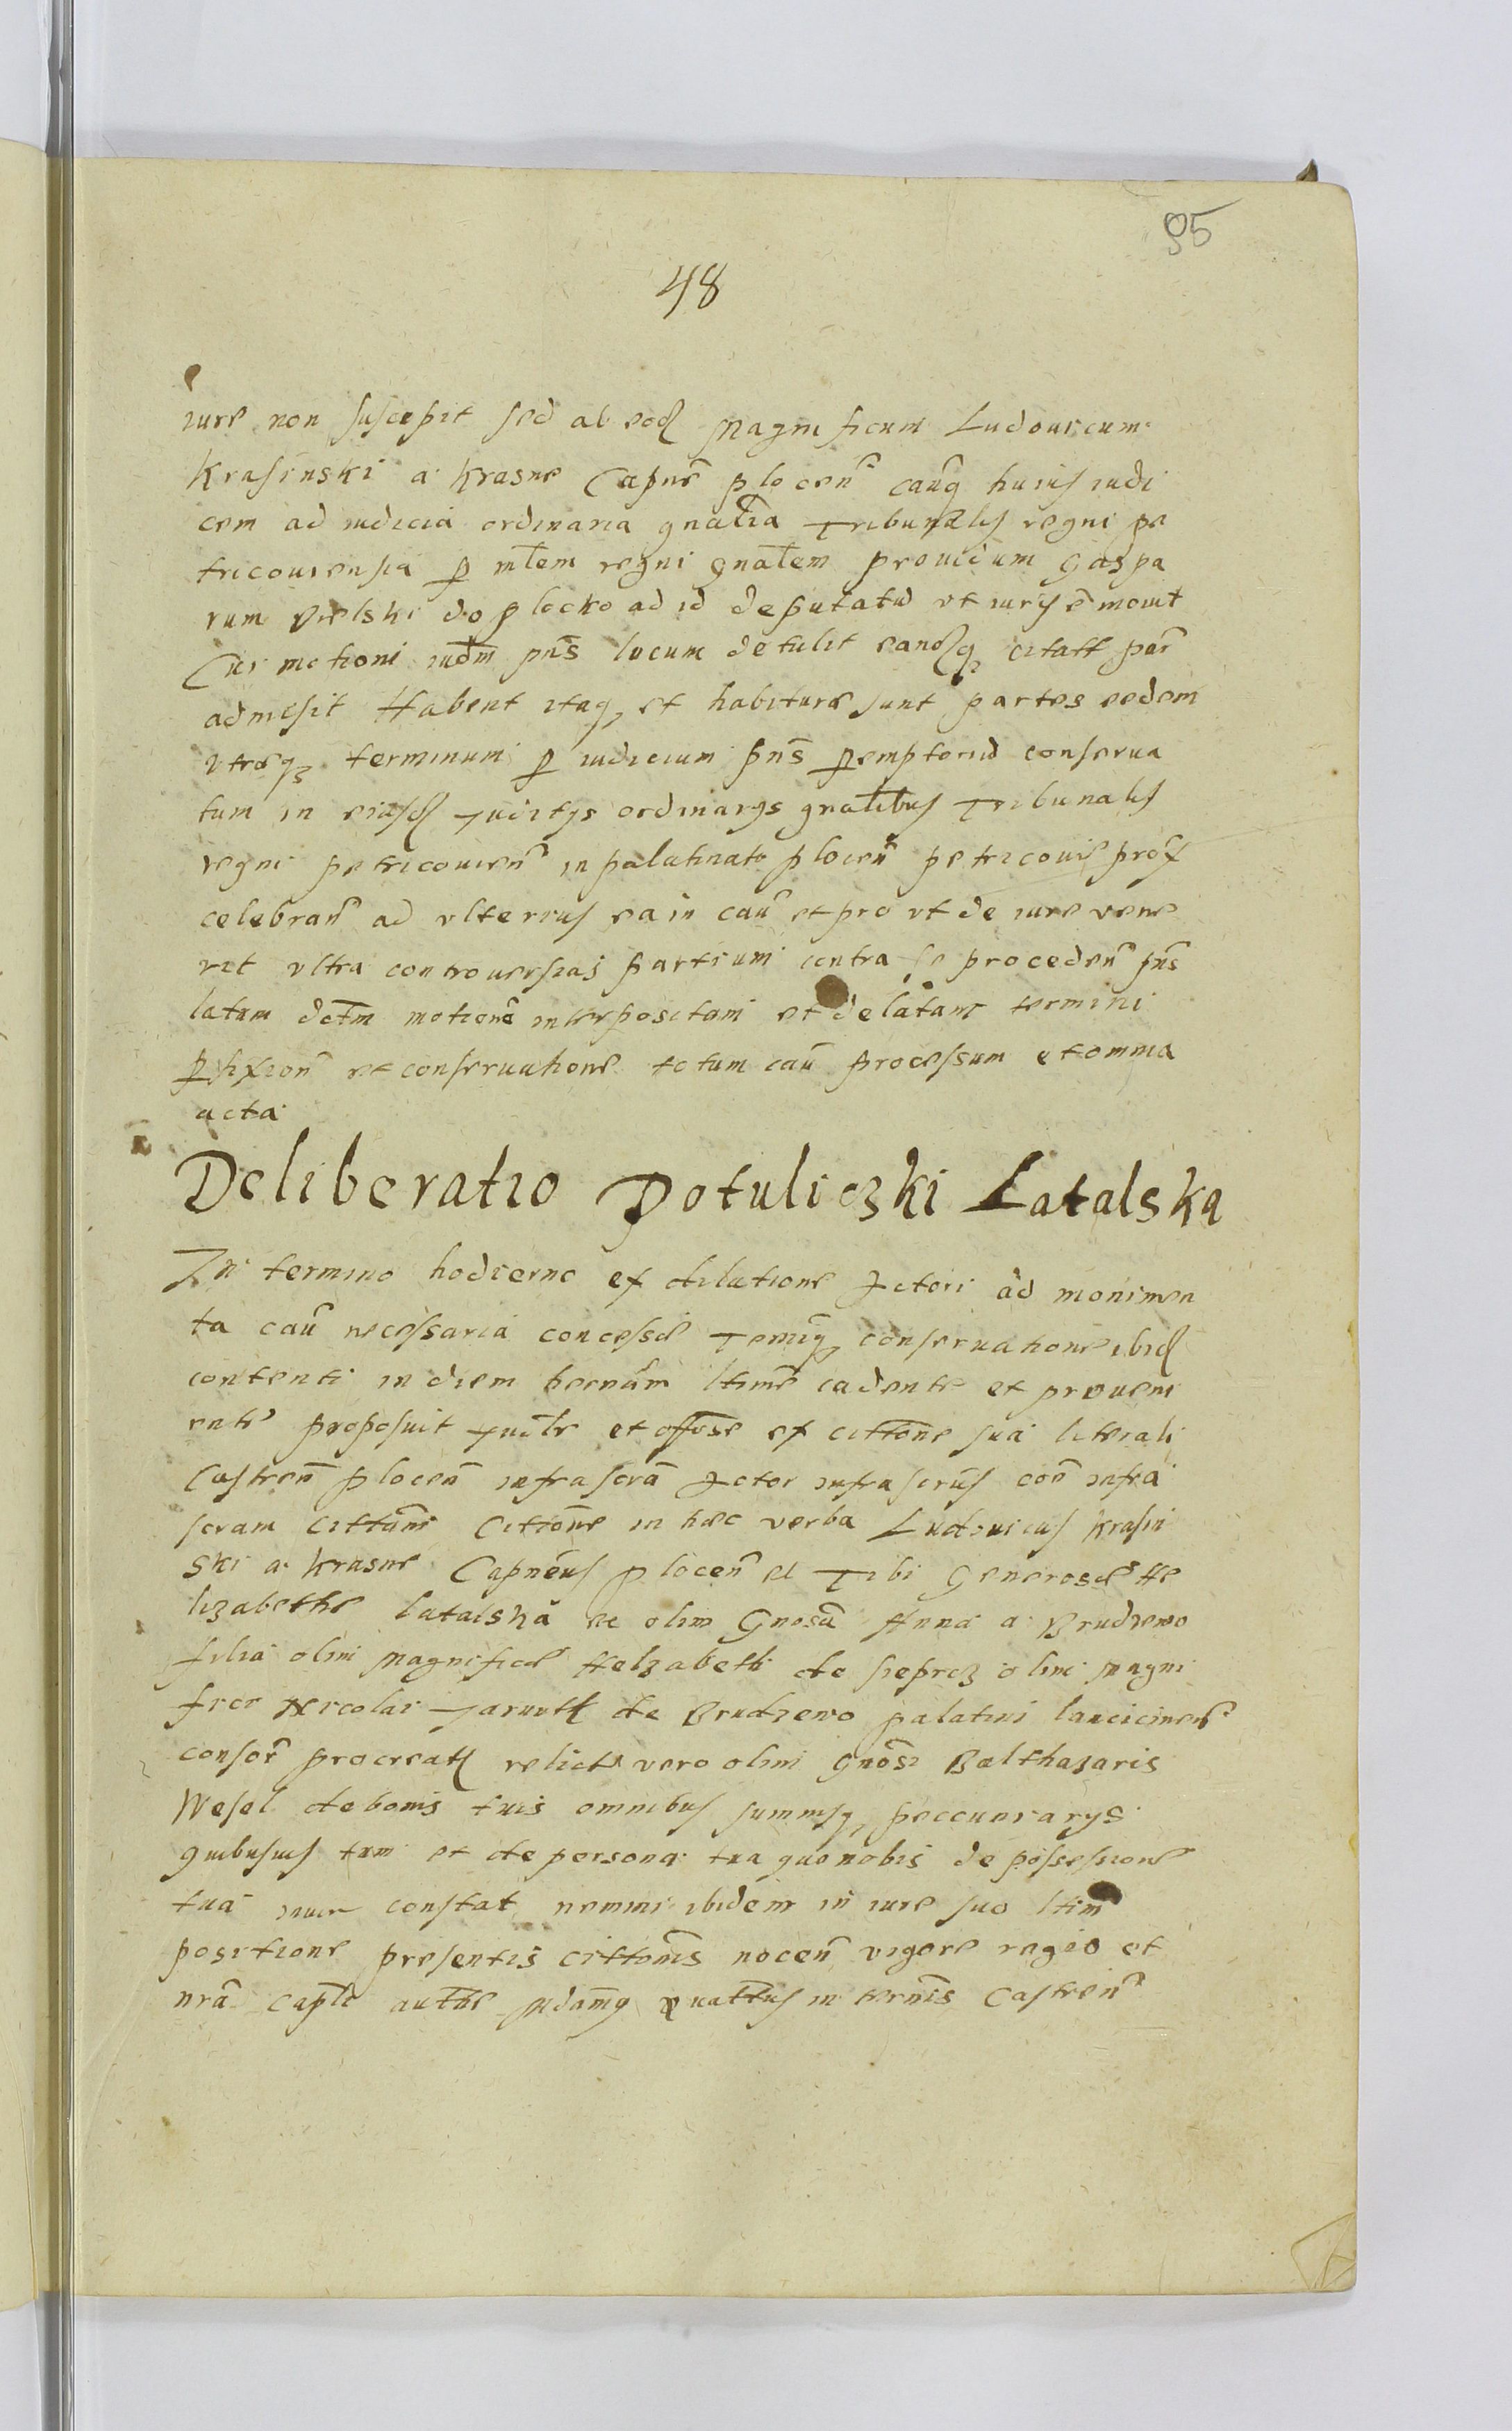 95
48
iure non suscepit sed ab eod Magnificum Ludouicum
Krasinski a Krasne Capnē plocen̄ cauq̄ huius iudi
cem ad iudicia ordinaria gnal̄ia Tribunalis regni pe
tricouiensia p ml̄em regni gnal̄em prouidum Gaspa
rum Vielski do plocko ad id deputatū vt iuris ē mouit
Cui motioni iudm̄ pn̄s locum detulit eandq̨ citatt par̄
admisit Habent itaq̨ et habiturae sunt partes eedem
vtraeq̨ terminum p iudicium pn̄s peremptoriū conserua
tum in eiusd Judicijs ordinarijs gnal̄ibus Tribunalis
regni petricouien̄ in palatinato plocen̄ petricouiae prox
celebran̄ ad vlterius ea in cau̅ et pro vt de iure vene
rit vltra controuersias partium contra se proceden̄ pn̄s
latam dct̄m motionē interpositam et delatam termini
pfixion̄ et conseruatione totum cau̅ processum et omnia
acta
Deliberatio Potuliczki Latalska
In termino hodierno ex dilatione Actori ad monimen
ta cau̅ necessaria concessae Terminiq̨ conseruatione ibid
contenti in diem hernām ltime cadente et proueni
ente proposuit Judl̄r et offose ex cittōne sua literali
Castren̄ plocen̄ infrascrā Actor infrascrūs con̄ infra
scram Cittām Citiōne in haec verba Ludouicus Krasin
ski a Krasne Capnēus plocen̄ et Tibi Generosae He
lizabethe Latalska ec olim Gnosā Anna a Brudzewo
filia olim Magnificae Helzabeth de sieprcz olim magni
fici Nicolai Jarundt de Brudzewo palatini lanciciner̄
consor̄ procreat relicte vero olim gnōsi Balthazaris
Wesel de bonis tuis omnibus summisq̨ peccuniarijs
quibusuis tum et de persona tua quo nobis de possessione
tua constat nemini ibidem in iure suo ltim
positione presentis cittōnis nocen̄ vigore regio et
nrā capl̄i auth̄e mdamq̄ quatt̄us in ternis Castren̄